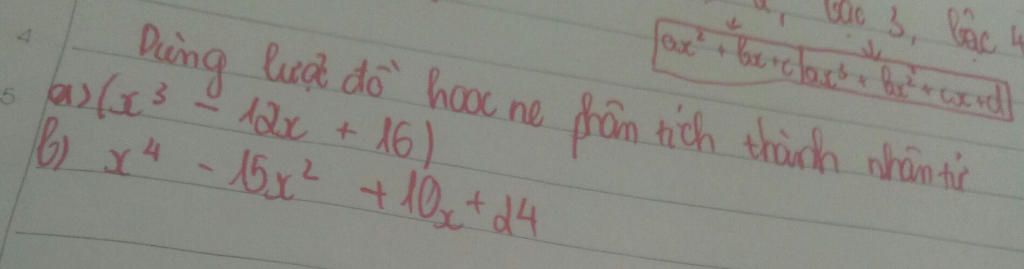 bậc 3, bậc 4
ax² + bx + c | ax³ + bx² + cx + d
Dùng lược đồ hooc ne phân tích thành nhân tử
a) (x³ - 12x + 16)
b) x⁴ - 15x² + 10x + 24